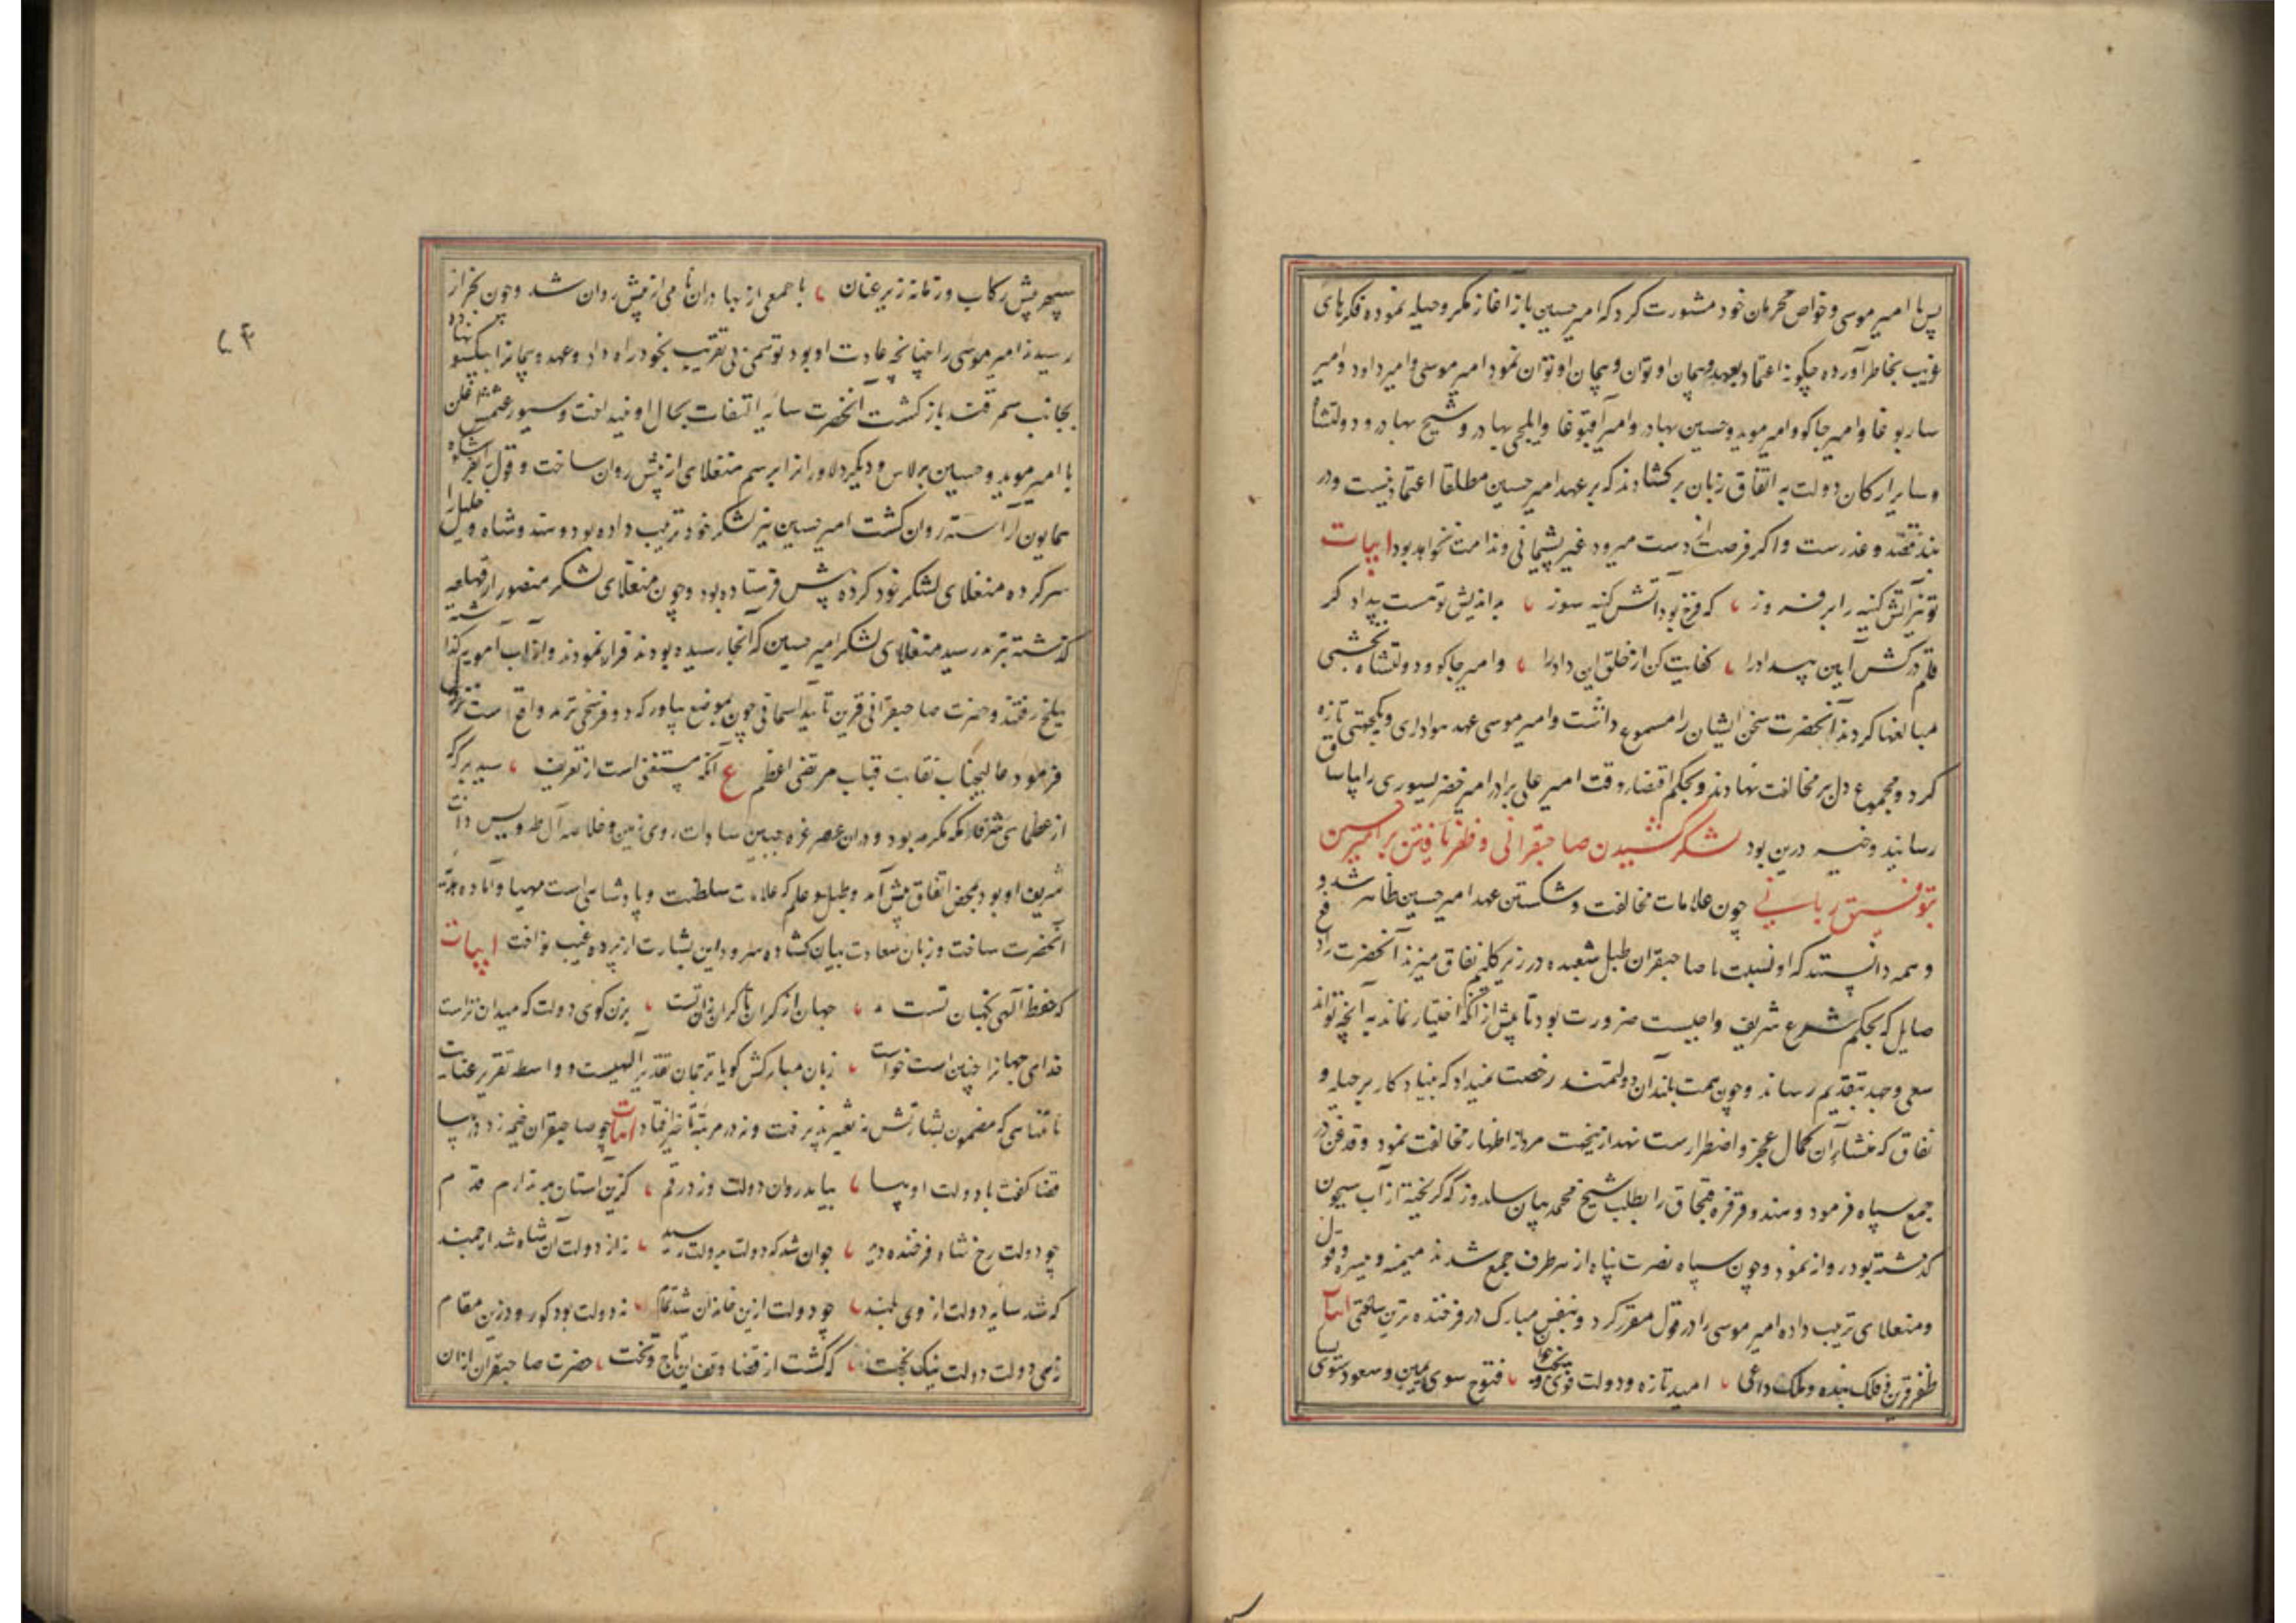 پس با امیر موسی و خواص محرمان خود مشورت کرد که امیر حسین باز اغاز مکر و حیله نموده فکرهای
غریب بخاطر آورده چکونه اعتماد بعهد و پیمان او توان و پیمان او توان نمود امیر موسی و امیر داود و امیر
ساربوغا و امیر جاکو و امیر موید و حسین بهادر و امیر آقبوغا و ایلچی بهادر و شیخ بهادر و دولتشاه
و سایر ارکان دولت به اتفاق زبان برکشادند که بر عهد امیر حسین مطلقا اعتماد نیست و در
بند قصد و غدرست و اکر فرصت از دست میرود غیر پشیمانی و ندامت نخواهد بود ابیات
تو نیز آتش کینه را برفروز که فرخ بود آتش کینه سوز بداندیش تو هست بیدادکر
قلم درکش آیین بیداد را کفایت کن از خلق این داد را و امیر جاکو و دولتشاه بخشی
مبالغها کردند آنحضرت سخن ایشان را مسموع داشت و امیر موسی عهد هواداری و یکجهتی تازه
کرد و مجموع دل بر مخالفت نهادند و بحکم اقتضا وقت امیر علی برادر امیر خضر یسوری را بیاساق
رسانید و خیره درین بود لشکر کشیدن صاحبقرانی و ظفر یافتن بر امیر حسین
بتوفیق ربانی چون علامات مخالفت و شکستن عهد امیر حسین ظاهر شد و
و همه دانستند که او نسبت با صاحبقران طبل شعبده در زیر کلیم نفاق میزند آنحضرت را دفع
صایل که بحکم شرع شریف واجبست ضرورت بود تا پیش از آنکه اختیار نماند به آنچه تواند
سعی و جهد بتقدیم رساند و چون همت بلند آن دولتمند رخصت نمیداد که بنیاد کار بر حیله و
نفاق که منشاء آن کمال عجز و اضطرارست نهد از نیخت مردانه اظهار مخالفت نمود و قدغن در
جمع سپاه فرمود و هندو قرقره قبجاق را بطلب شیخ محمد بیان سلدوز که کریخته از آب سیحون
کذشته بود روانه نمود و چون سپاه نصرت پناه از هر طرف جمع شدند میمنه و میسره و قول
و منغلای ترتیب داده امیر موسی را در قول مقرر کرد و بنفس مبارک در فرخنده ترین ساعتی ابیات
ظفر قرین و فلک بنده و ملک داعی امید تازه و دولت قوی و بخت جوان فتوح سوی یمین و سعود سوی یسار
سپهر پیش رکاب و زمانه زیر عنان با جمعی از بهادران نامی از پیش روان شد و چون بخزار
رسیدند امیر موسی را چنانچه عادت او بود توهمی بی تقریب بخود راه داد و عهد و پیمانرا بیکسو نهاده
بجانب سمرقند باز کشت آنحضرت سایه التفات بحال او نینداخت و سیورغتمش اغلن
با امیر موید و حسین برلاس و دیکر دلاورانرا برسم منغلای از پیش روان ساخت و قول بفر شکوه
همایون آراسته روان کشت امیر حسین نیز لشکر خود ترتیب داده بود و هندوشاه و خلیل را
سرکرده منغلای لشکر خود کرده پیش فرستاده بود و چون منغلای لشکر منصور از قهلغه
کذشته بترمد رسید منغلای لشکر امیر حسین که آنجا رسیده بودند فرار نمودند و از آب آمویه کذشته
ببلخ رفتند و حضرت صاحبقرانی قرین تایید آسمانی چون بموضع بیا ور که دو فرسخی ترمد واقع است نزول
فرمود عالیجناب نقابت قباب مرتضی اعظم ع آنکه مستغنی است از تعریف سید برکه
از عظمای شرفا مکه مکرمه بود و در ان عصر غره جبین سادات روی زمین و خلاصه آل طه و یس ذات
شریف او بود بمحض اتفاق پیش آمد و طبل و علم که علامت سلطنت و پادشاهی است مهیا و آماده
آنحضرت ساخت و زبان سعادت بیان کشاده سرود این بشارت از پرده غیب نواخت ابیات
که حفظ آلهی نکهبان تست جهان از کران تا کران زان تست بزن کوی دولت که میدان تراست
خدای جهانرا چنین است خواست زبان مبارکش کویا ترجمان تقدیر الهیست و واسطه تقریر عنایت
نامتناهی که مضمون بشارتش نه تغییر پذیرفت و نه در مرتبه تاخیر افتاد ابیات چو صاحبقران خیمه زد در بیا
قضا کفت با دولت او بیا بیامد روان دولت و زد رقم کزین آستان بر ندارم قدم
چو دولت رخ شاه فرخنده دید جوان شد که دولت بدولت رسید نه از دولت آن شاه شد ارجمند
که شد سایه دولت از وی بلند چو دولت ازین خاندان شد تمام نه دولت بود کو رود زین مقام
زهی دولت دولت نیک بخت که کشت از قضا وقف این تاج و تخت حضرت صاحبقران از ان